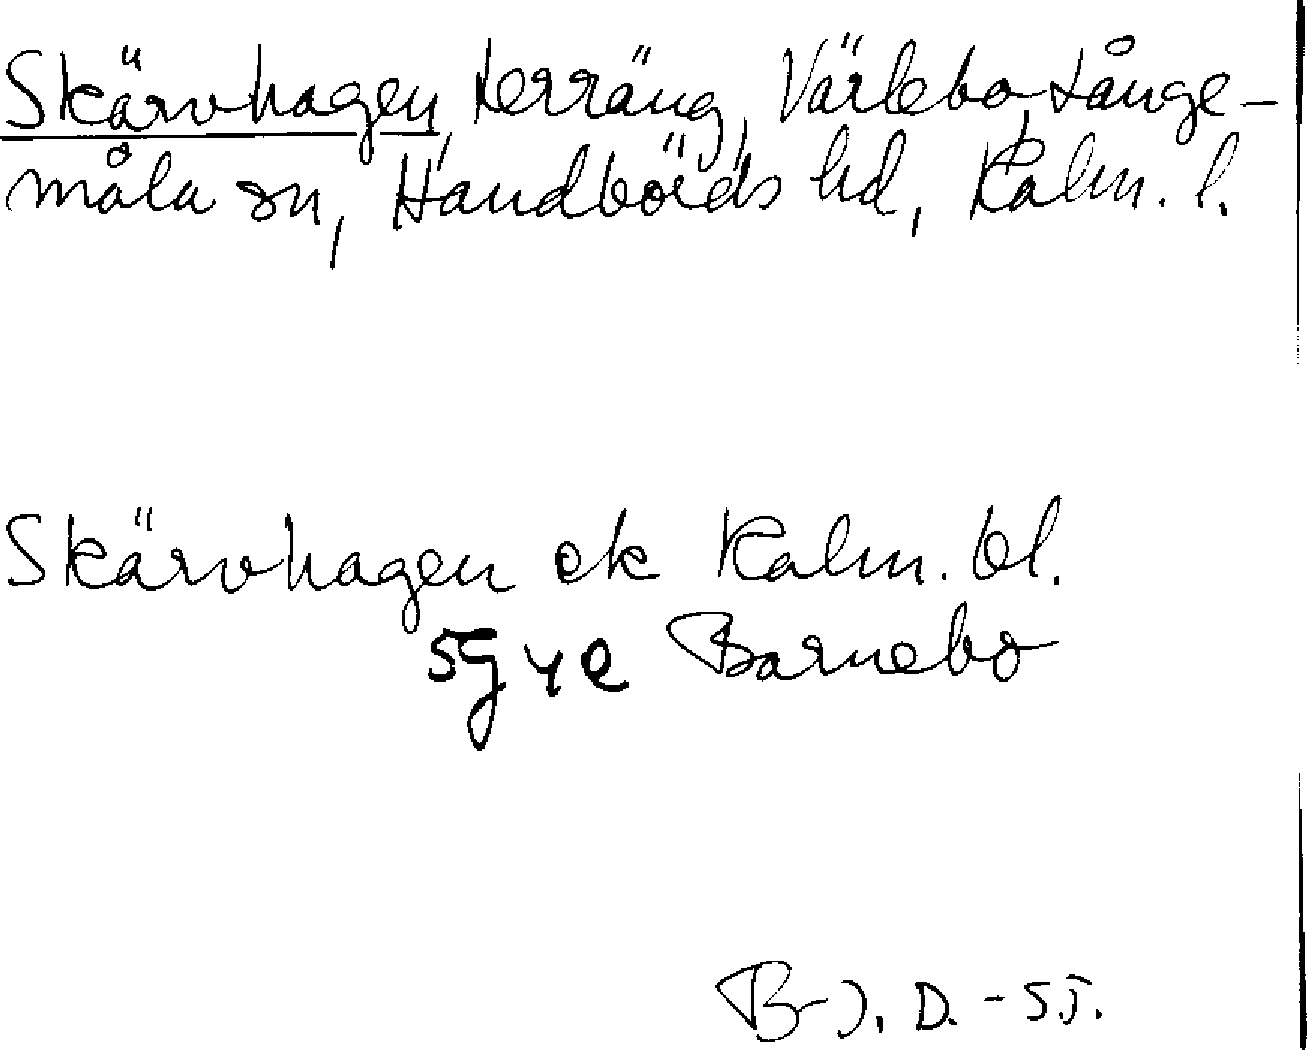 Skärvhagen, terräng, Värlebo, Långe-
måla sn, Handbörds hd, Kalm. l.
Skärvhagen ek Kalm. bl.
5G4e Barnebo
B-J. D. - 55.